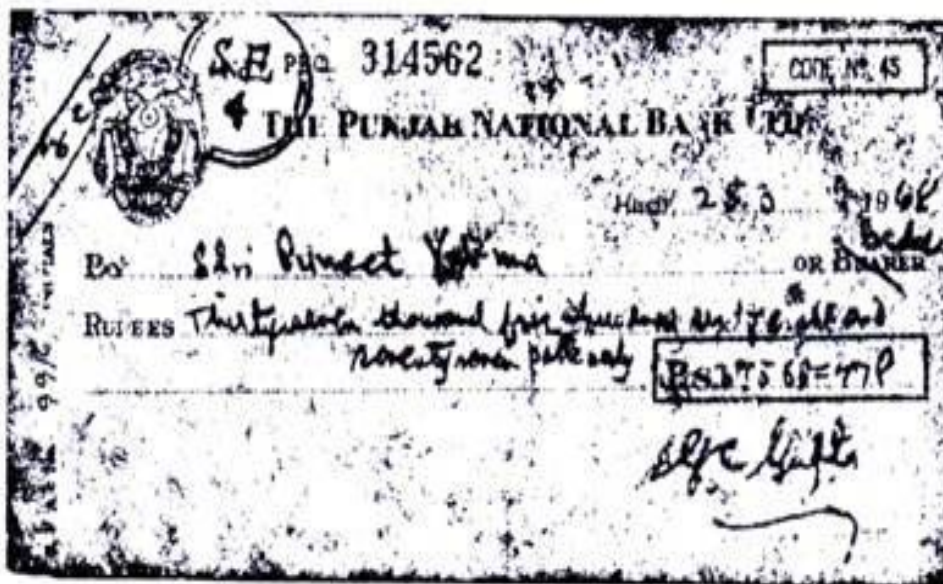 S.E 314562
4
CODE Nº 45
THE PUNJAB NATIONAL BANK LTD
25.3 1968
Pay Shri Puneet Verma OR BEARER
RUPEES Thirty seven thousand five hundred sixty eight and
seventy seven paise only
Rs 37568=77P
Gupta